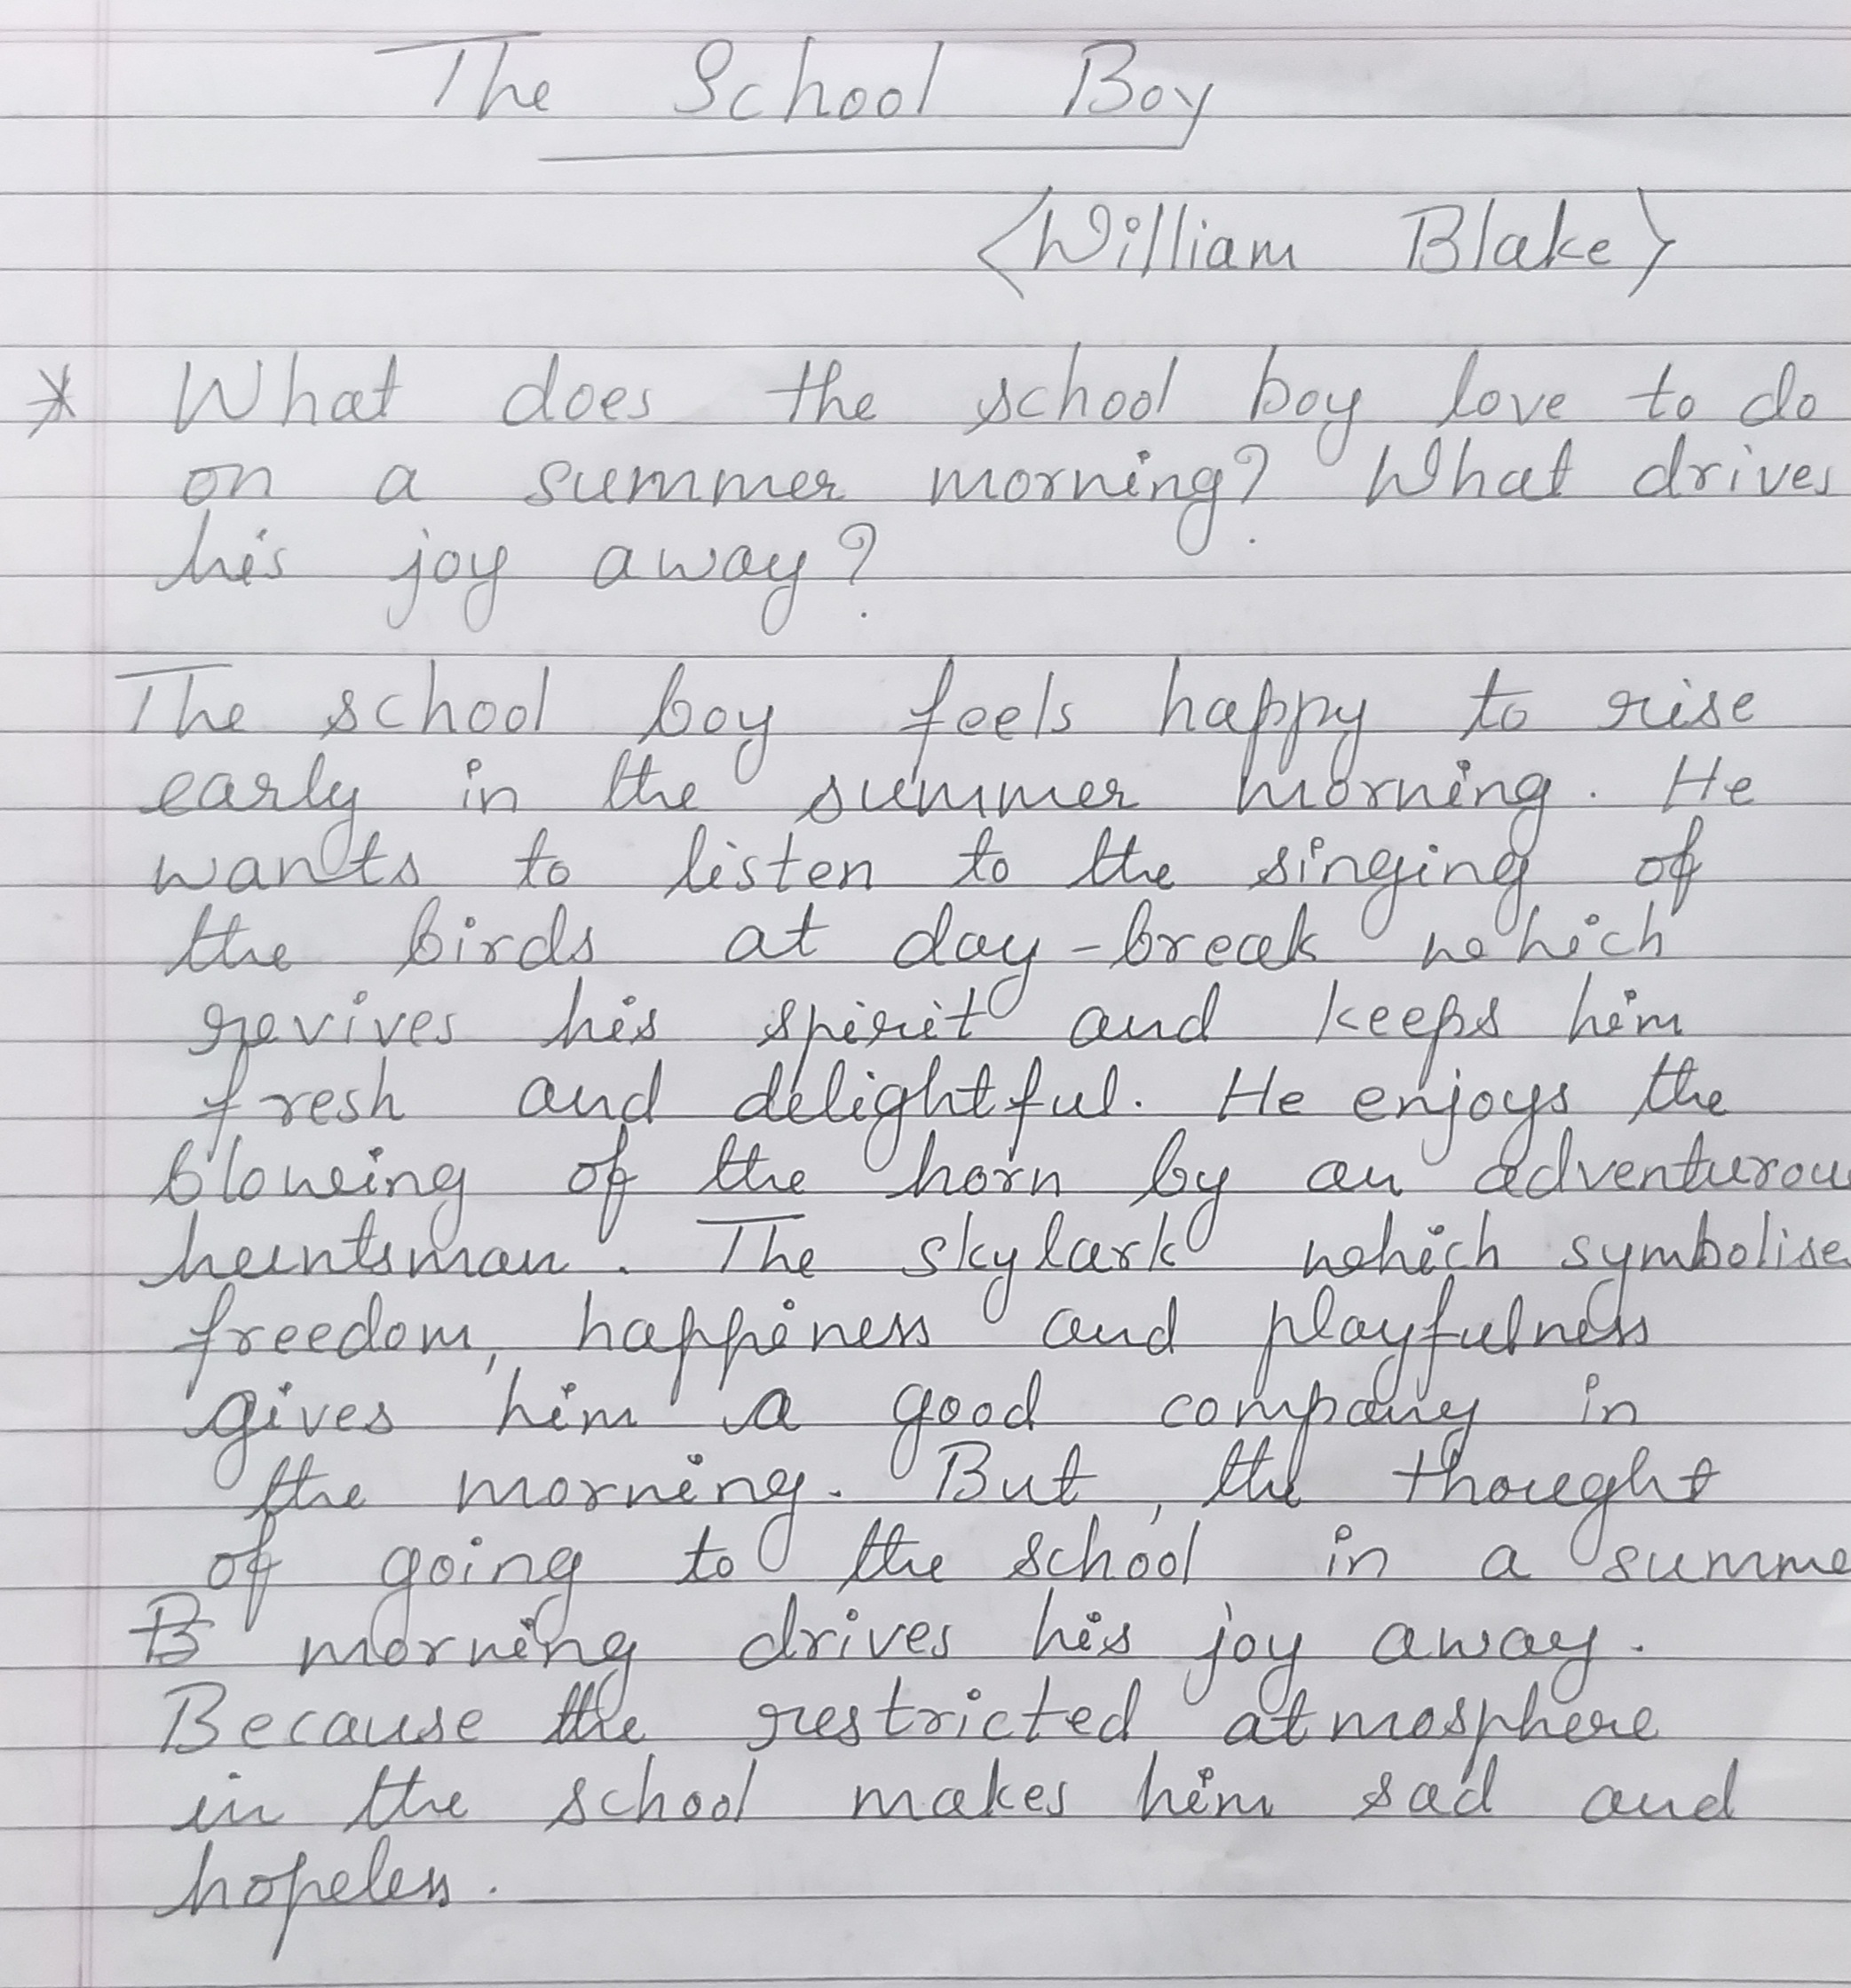 The School Boy
<William Blake>
* What does the school boy love to do
on a summer morning? What drives
his joy away?
The school boy feels happy to rise
early in the summer morning. He
wants to listen to the singing of
the birds at day-break which
revives his spirit and keeps him
fresh and delightful. He enjoys the
blowing of the horn by an adventurou
huntsman. The skylark which symbolise
freedom, happiness and playfulness
gives him a good company in
the morning. But, the thought
of going to the school in a summe
B morning drives his joy away.
Because the restricted atmosphere
in the school makes him sad and
hopeless.